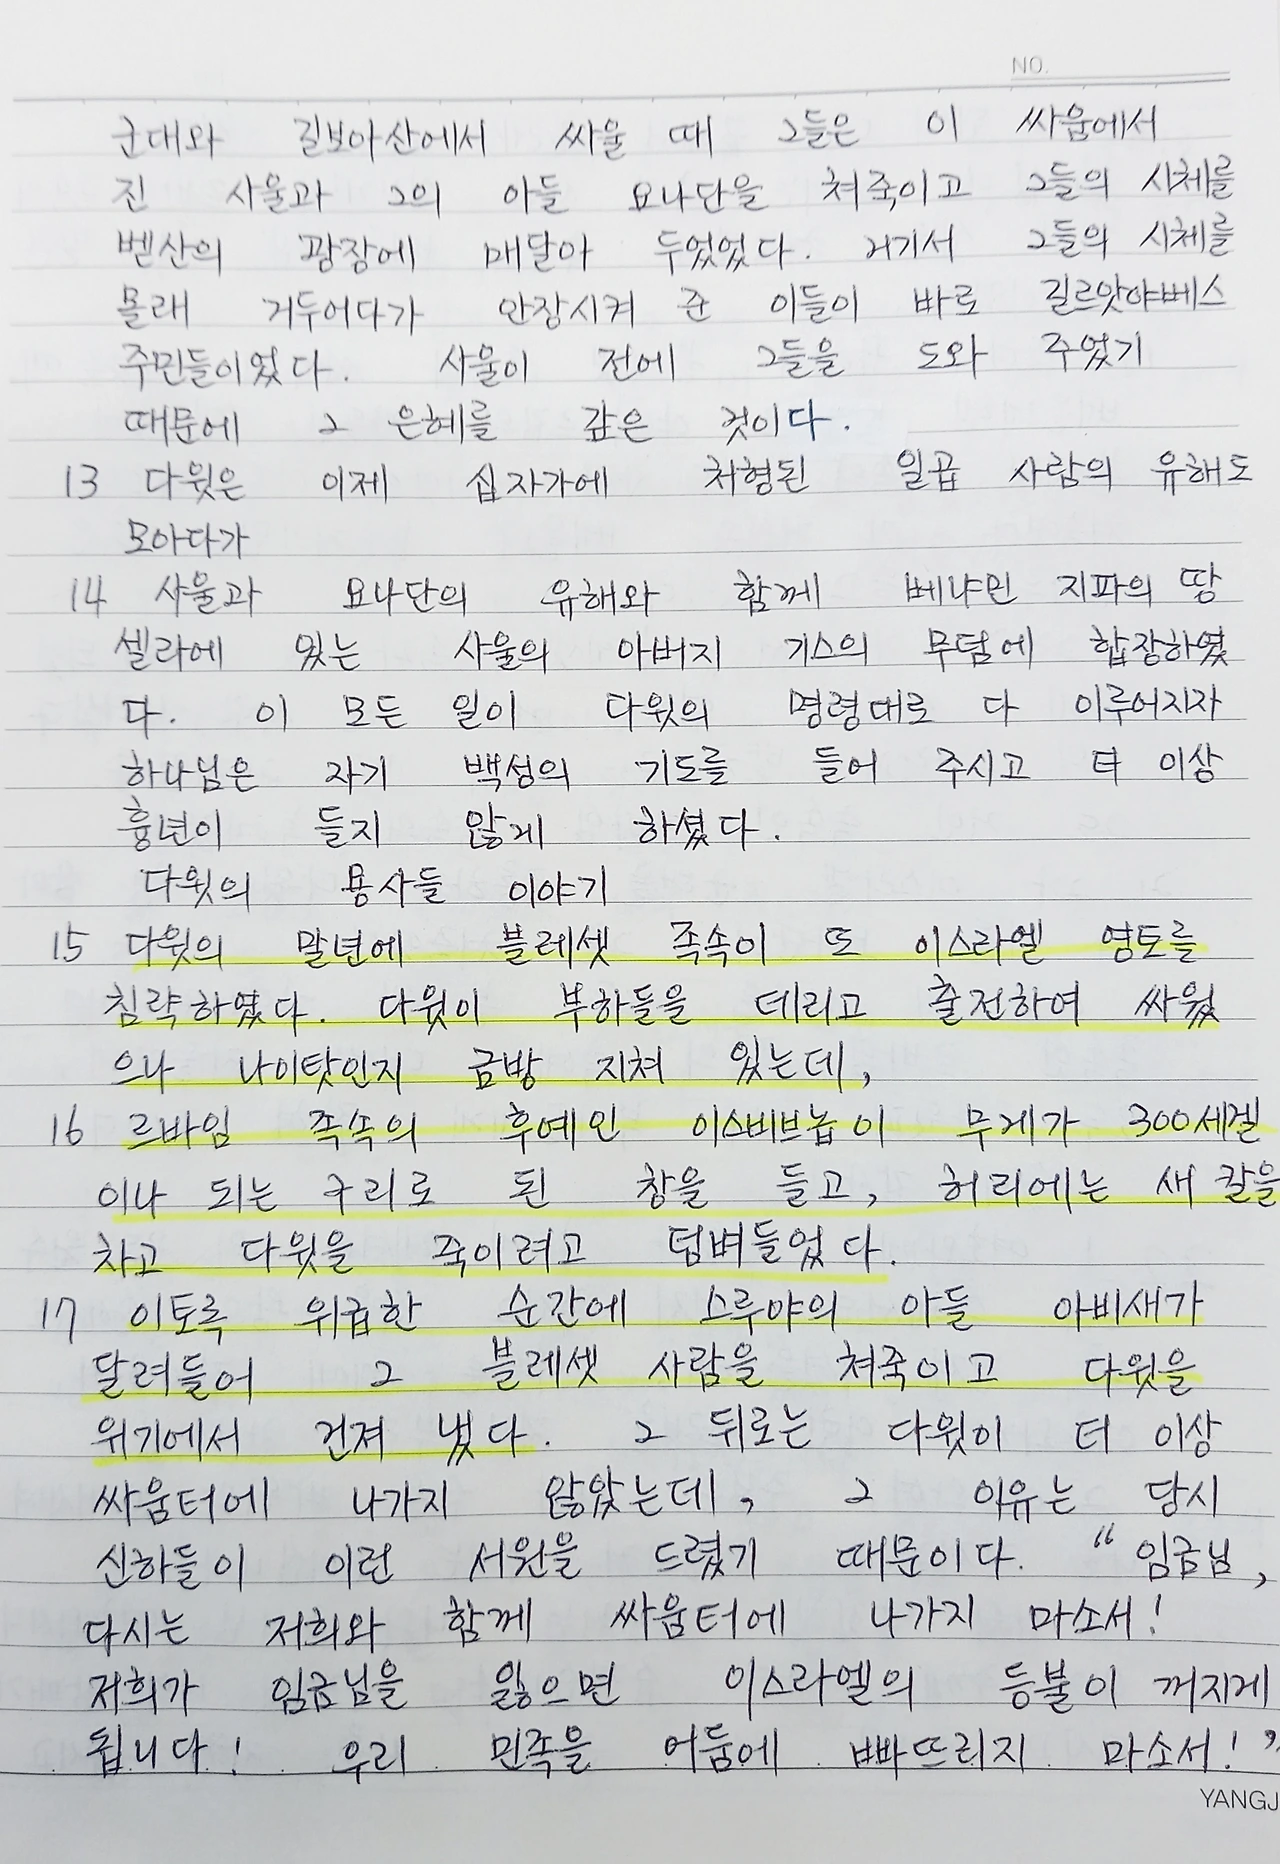 NO.
군대와 길보아산에서 싸울 때 그들은 이 싸움에서
진 사울과 그의 아들 요나단을 쳐죽이고 그들의 시체를
벧산의 광장에 매달아 두었었다. 거기서 그들의 시체를
몰래 거두어다가 안장시켜 준 이들이 바로 길르앗야베스
주민들이었다. 사울이 전에 그들을 도와 주었기
때문에 그 은혜를 갚은 것이다.
13 다윗은 이제 십자가에 처형된 일곱 사람의 유해도
모아다가
14 사울과 요나단의 유해와 함께 베냐민 지파의 땅
셀라에 있는 사울의 아버지 기스의 무덤에 합장하였
다. 이 모든 일이 다윗의 명령대로 다 이루어지자
하나님은 자기 백성의 기도를 들어 주시고 더 이상
흉년이 들지 않게 하셨다.
다윗의 용사들 이야기
15 다윗의 말년에 블레셋 족속이 또 이스라엘 영토를
침략하였다. 다윗이 부하들을 데리고 출전하여 싸웠
으나 나이탓인지 금방 지쳐 있는데,
16 르바임 족속의 후예인 이스비브놉이 무게가 300세겔
이나 되는 구리로 된 창을 들고, 허리에는 새 칼을
차고 다윗을 죽이려고 덤벼들었다.
17 이토록 위급한 순간에 스루야의 아들 아비새가
달려들어 그 블레셋 사람을 쳐죽이고 다윗을
위기에서 건져 냈다. 그 뒤로는 다윗이 더 이상
싸움터에 나가지 않았는데, 그 이유는 당시
신하들이 이런 서원을 드렸기 때문이다. “임금님,
다시는 저희와 함께 싸움터에 나가지 마소서!
저희가 임금님을 잃으면 이스라엘의 등불이 꺼지게
됩니다! 우리 민족을 어둠에 빠뜨리지 마소서!”
YANGJ